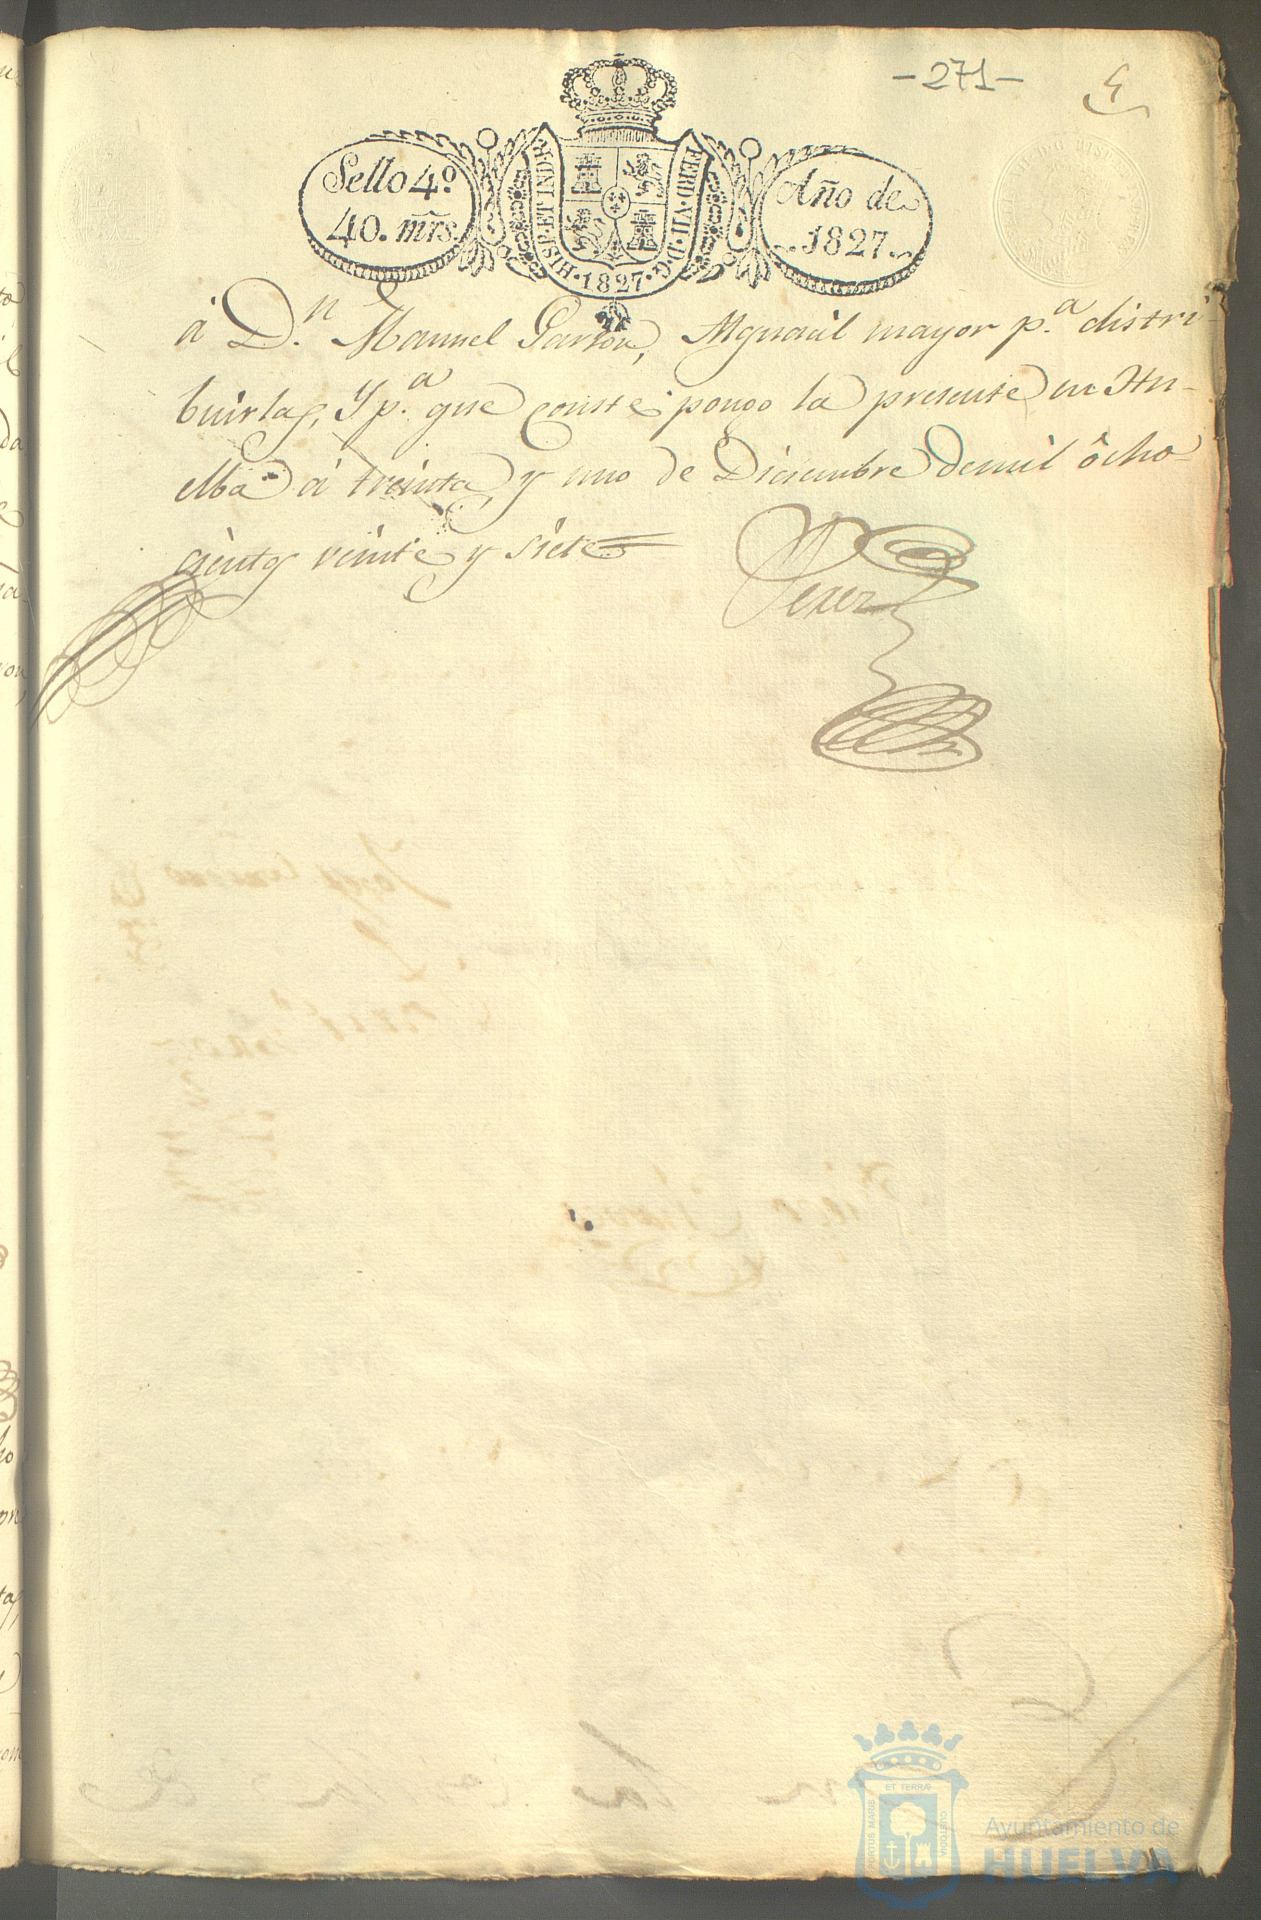 -271-
Sello 4º
40. mrs.
HISP. ET IND. R.
FERD. VII. D. G.
·1827·
Año de
1827.
à D.n Manuel Garzon, Alguacil mayor p.a distri-
buirlas, Y p.a que conste pongo la presente en Hu-
elba à treinta y uno de Diciembre de mil ôcho-
cientos veinte y siete
Perez
ET TERRÆ
PORTUS MARIS
CUSTODIA
Ayuntamiento de
HUELVA